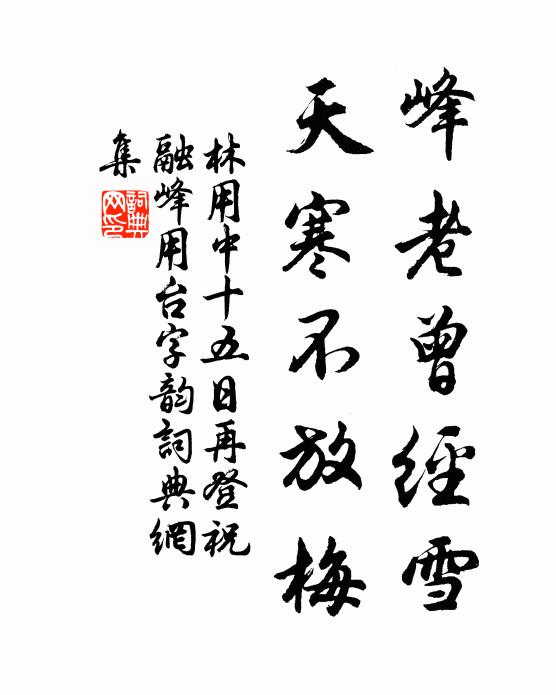 峰老曾經雪
天寒不放梅
林用中十五日再登祝
融峰用台字韵詞典網
集
詞典
网印